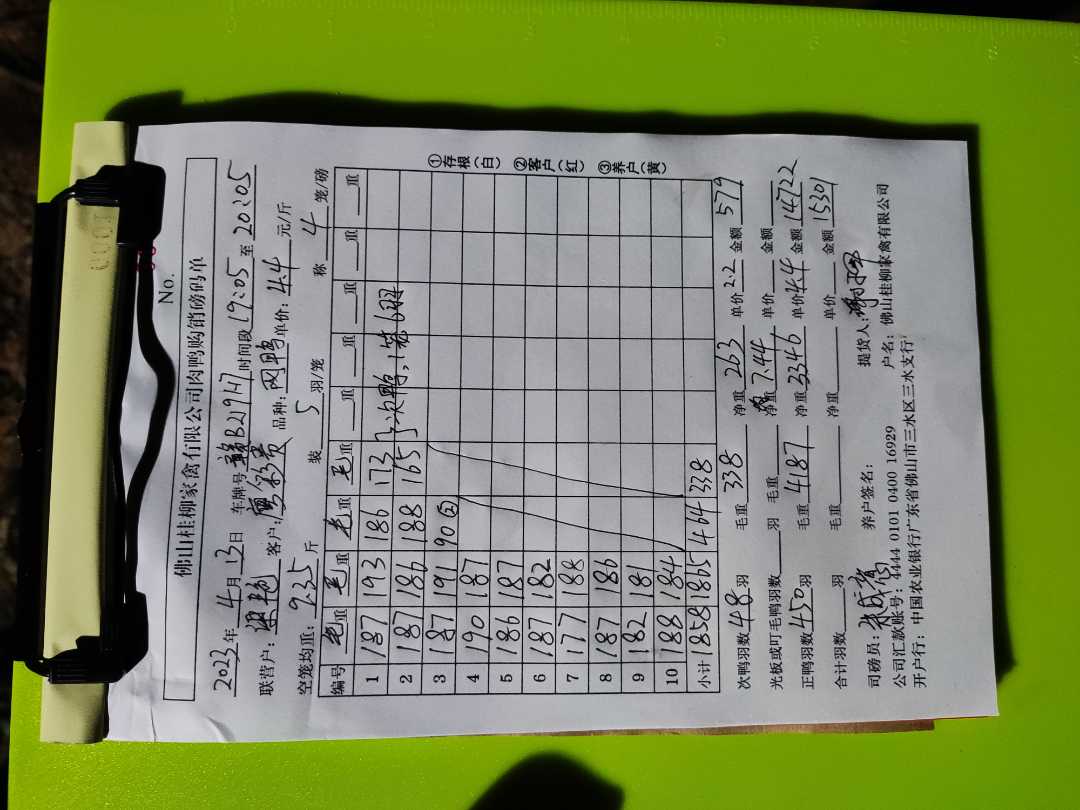 No.
佛山桂柳家禽有限公司肉鸭购销磅码单
2023年4月13日 车牌号 赣B21917 时间段 19:05 至 20:05
联营户: 客户: 品种: 网鸭 单价: 4.4 元/斤
空笼均重: 9.35 斤 装 5 羽/笼 称 4 笼/磅
编号 毛重 毛重 毛重 毛重 重 重 重 重 重
1 187 193 186 173 次鸭,1笼6羽
2 187 186 188 165
3 187 191 90②
4 190 187
5 186 187
6 187 182
7 177 188
8 187 186
9 182 181
10 188 184
小计 1858 1865 464 338
①存根(白) ②客户(红) ③养户(黄)
次鸭羽数 48 羽 毛重 338 净重 263 单价 2.2 金额 579
光板或叮毛鸭羽数 羽 毛重 净重 7.44 单价 金额
正鸭羽数 450 羽 毛重 4187 净重 3346 单价 4.4 金额 14722
合计羽数 羽 毛重 净重 单价 金额 15301
司磅员: 养户签名: 提货人:
公司汇款账号: 4444 0101 0400 16929 户名: 佛山桂柳家禽有限公司
开户行: 中国农业银行广东省佛山市三水区三水支行